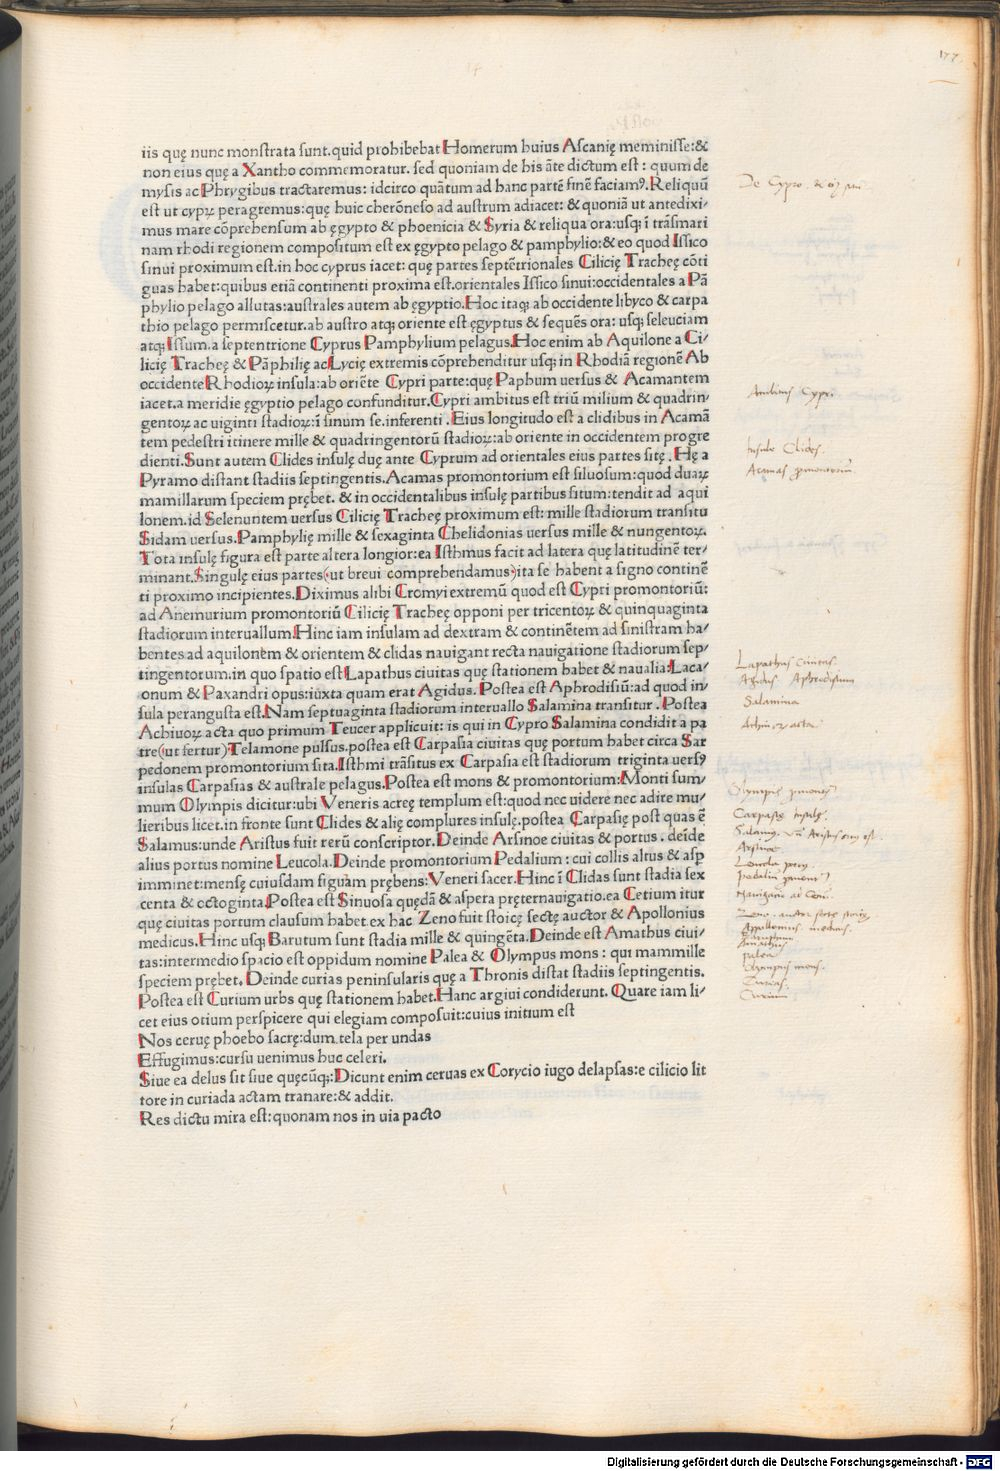 177
iis quę nunc monstrata sunt.quid prohibebat Homerum huius Ascanię meminisse:&
non eius quę a Xantho commemoratur. sed quoniam de his āte dictum est : quum de
mysis ac Phrygibus tractaremus : idcirco quātum ad hanc partē finē faciamꝰ. Reliquū
est ut cypꝝ peragremus:quę huic cherōneso ad austrum adiacet: & quoniā ut antedixi-
mus mare cōprehensum ab ęgypto & phoenicia & Syria & reliqua ora:usqꝫ ī trāsmari
nam rhodi regionem compositum est ex ęgypto pelago & pamphylio:& eo quod Issico
sinui proximum est.in hoc cyprus iacet: quę partes septētrionales Cilicię Tracheę cōti
guas habet:quibus etiā continenti proxima est.orientales Issico sinui:occidentales a Pā
phylio pelago allutas:australes autem ab ęgyptio.Hoc itaqꝫ ab occidente libyco & carpa
thio pelago permiscetur.ab austro atqꝫ oriente est ęgyptus & sequēs ora: usqꝫ seleuciam
atqꝫ Issum.a septentrione Cyprus Pamphylium pelagus.Hoc enim ab Aquilone a Ci/
licię Tracheę & Pāphilię ac Lycię extremis cōprehenditur usqꝫ in Rhodiā regionē Ab
occidente Rhodioꝝ insula:ab oriēte Cypri parte:quę Paphum uersus & Acamantem
iacet.a meridie ęgyptio pelago confunditur.Cypri ambitus est triū milium & quadrin/
gentoꝝ ac uiginti stadioꝝ:ī sinum se.inferenti . Eius longitudo est a clidibus in Acamā
tem pedestri itinere mille & quadringentorū stadioꝝ:ab oriente in occidentem progre
dienti.Sunt autem Clides insulę duę ante Cyprum ad orientales eius partes sitę . Hę a
Pyramo distant stadiis septingentis.Acamas promontorium est siluosum:quod duaꝝ
mamillarum speciem prębet. & in occidentalibus insulę partibus situm:tendit ad aqui
lonem.id Selenuntem uersus Cilicię Trachee proximum est: mille stadiorum transitu
Sidam uersus.Pamphylię mille & sexaginta Chelidonias uersus mille & nungentoꝝ.
Tota insulę figura est parte altera longior:ea Isthmus facit ad latera quę latitudinē ter/
minant.Singulę eius partes(ut breui comprehendamus)ita se habent a signo continē
ti proximo incipientes.Diximus alibi Cromyi extremū quod est Cypri promontoriū:
ad Anemurium promontoriū Cilicię Trachee opponi per tricentoꝝ & quinquaginta
stadiorum interuallum.Hinc iam insulam ad dextram & continētem ad sinistram ha/
bentes ad aquilonēm & orientem & clidas nauigant recta nauigatione stadiorum sep/
tingentorum.in quo spatio est Lapathus ciuitas quę stationem habet & naualia:Laca/
onum & Paxandri opus:iuxta quam erat Agidus. Postea est Aphrodisiū:ad quod in/
sula perangusta est.Nam septuaginta stadiorum interuallo Salamina transitur . Postea
Achiuoꝝ acta quo primum Teucer applicuit: is qui in Cypro Salamina condidit a pa
tre(ut fertur)Telamone pulsus.postea est Carpasia ciuitas quę portum habet circa Sar
pedonem promontorium sita.Isthmi trāsitus ex Carpasia est stadiorum triginta uersꝰ
insulas Carpasias & australe pelagus.Postea est mons & promontorium:Monti sum/
mum Olympis dicitur:ubi Veneris acreę templum est:quod nec uidere nec adire mu/
lieribus licet.in fronte sunt Clides & alię complures insulę.postea Carpasię post quas ē
Salamus:unde Aristus fuit rerū conscriptor.Deinde Arsinoe ciuitas & portus . deīde
alius portus nomine Leucola.Deinde promontorium Pedalium : cui collis altus & asp
imminet:mensę cuiusdam figuam prębens:Veneri sacer.Hinc ī Clidas sunt stadia sex
centa & octoginta.Postea est Sinuosa quędā & aspera pręternauigatio.ea Cetium itur
quę ciuitas portum clausum habet.ex hac Zeno fuit stoicę sectę auctor & Apollonius
medicus.Hinc usqꝫ Barutum sunt stadia mille & quingēta.Deinde est Amathus ciui/
tas:intermedio spacio est oppidum nomine Palea & Olympus mons : qui mammille
speciem prębet. Deinde curias peninsularis quę a Thronis distat stadiis septingentis.
Postea est Curium urbs quę stationem habet.Hanc argiui condiderunt. Quare iam li/
cet eius otium perspicere qui elegiam composuit:cuius initium est
Nos ceruę phoebo sacrę:dum tela per undas
Effugimus:cursu uenimus huc celeri.
Siue ea delus sit siue quęcūqꝫ:Dicunt enim ceruas ex Corycio iugo delapsas:e cilicio lit
tore in curiada actam tranare:& addit.
Res dictu mira est:quonam nos in uia pacto
De Cypro
Ambitus Cypri
Insule Clides
Acamas promontoriū
Lapathus Ciuitas
Agidus Aphrodisium
Salamina
Carpasię Insulę
Arsinoe
Apollonius medicus
Amathus
palea
Olympus mons
Curias
Curium
Digitalisierung gefördert durch die Deutsche Forschungsgemeinschaft - DFG